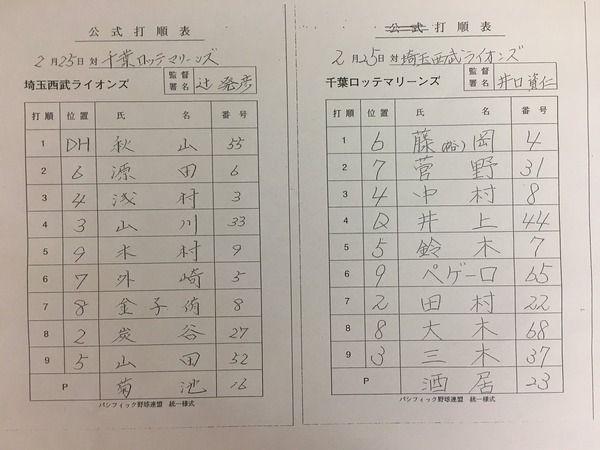 公式打順表
2月25日 対 千葉ロッテマリーンズ
埼玉西武ライオンズ 監督署名 辻 発彦
打順 位置 氏名 番号
1 DH 秋山 55
2 6 源田 6
3 4 浅村 3
4 3 山川 33
5 9 木村 9
6 7 外崎 5
7 8 金子侑 8
8 2 炭谷 27
9 5 山田 52
P 菊池 16
パシフィック野球連盟 統一様式
公式打順表
2月25日 対 埼玉西武ライオンズ
千葉ロッテマリーンズ 監督署名 井口 資仁
打順 位置 氏名 番号
1 6 藤(裕)岡 4
2 7 菅野 31
3 4 中村 8
4 D 井上 44
5 5 鈴木 7
6 9 ペゲーロ 65
7 2 田村 22
8 8 大木 68
9 3 三木 37
P 酒居 23
パシフィック野球連盟 統一様式